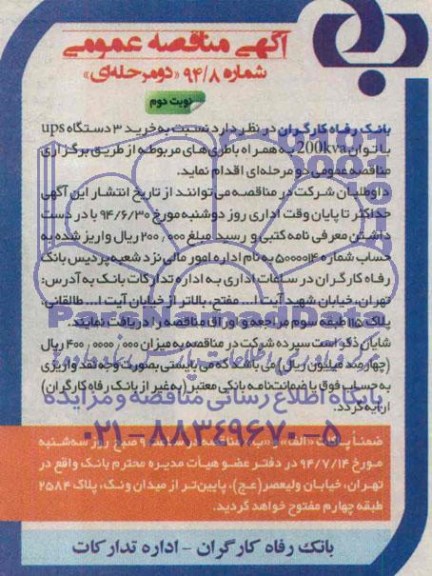 آگهی مناقصه عمومی
شماره ۹۴/۸ «دومرحله‌ای»
نوبت دوم
بانک رفاه کارگران در نظر دارد نسبت به خرید ۳ دستگاه ups
با توان 200kva به همراه باطری های مربوطه از طریق برگزاری
مناقصه عمومی دو مرحله‌ای اقدام نماید.
داوطلبان شرکت در مناقصه می‌توانند از تاریخ انتشار این آگهی
حداکثر تا پایان وقت اداری روز دوشنبه مورخ ۹۴/۶/۳۰ با در دست
داشتن معرفی نامه کتبی و رسید مبلغ ۲۰۰٫۰۰۰ ریال واریز شده به
حساب شماره ۵۰۰۰۰۱۴۰ به نام اداره امور مالی نزد شعبه پردیس بانک
رفاه کارگران در ساعات اداری به اداره تدارکات بانک به آدرس:
تهران، خیابان شهید آیت ا... مفتح، بالاتر از خیابان آیت ا... طالقانی،
پلاک ۱۵ طبقه سوم مراجعه و اوراق مناقصه را دریافت نمایند.
شایان ذکر است سپرده شرکت در مناقصه به میزان ۴۰۰٫۰۰۰٫۰۰۰ ریال
(چهارصد میلیون ریال) می باشد که می بایستی بصورت وجه نقد واریزی
به حساب فوق یا ضمانت‌نامه بانکی معتبر (به غیر از بانک رفاه کارگران)
ارایه گردد.
ضمناً پاکات «الف» و «ب» مناقصه در ساعت ۹ صبح روز سه‌شنبه
مورخ ۹۴/۷/۱۴ در دفتر عضو هیأت مدیره محترم بانک واقع در
تهران، خیابان ولیعصر(عج)، پایین‌تر از میدان ونک، پلاک ۲۵۸۴
طبقه چهارم مفتوح خواهد گردید.
بانک رفاه کارگران - اداره تدارکات
ParsNamadData
پایگاه اطلاع رسانی مناقصه و مزایده
۰۲۱-۸۸۳۴۹۶۷۰-۵